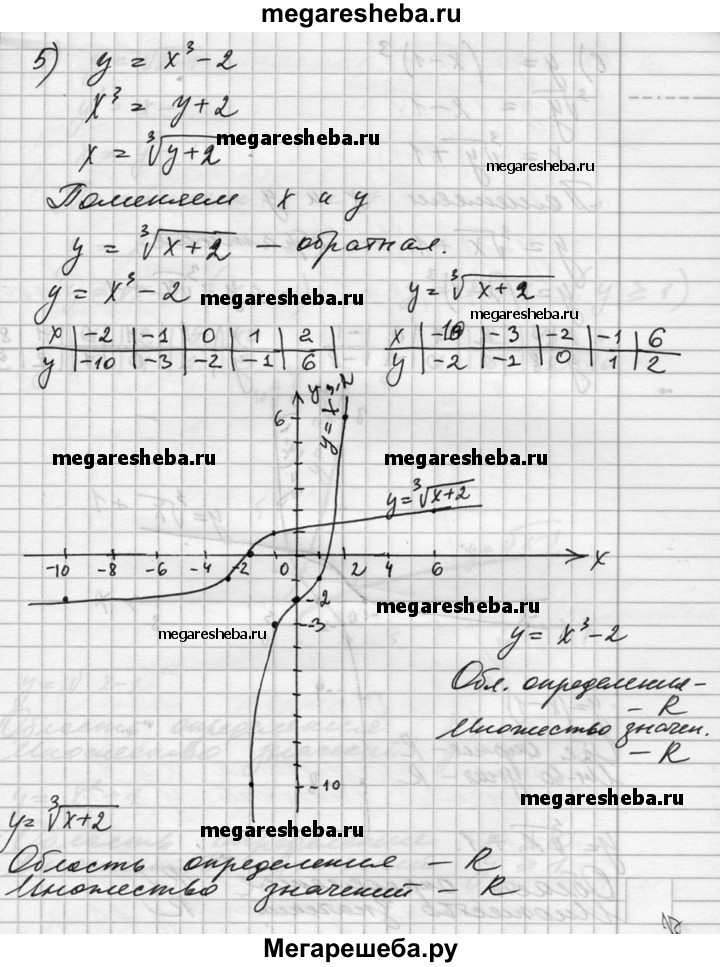 megaresheba.ru
5) y = x³ - 2
x³ = y + 2
megaresheba.ru
x = ∛(y+2)
megaresheba.ru
Поменяем x и y
y = ∛(x+2) — обратная.
y = x³ - 2 megaresheba.ru y = ∛(x+2)
megaresheba.ru
x | -2 | -1 | 0 | 1 | 2
y | -10 | -3 | -2 | -1 | 6
x | -10 | -3 | -2 | -1 | 6
y | -2 | -1 | 0 | 1 | 2
y
6
y = x³-2
megaresheba.ru megaresheba.ru
y = ∛(x+2)
-10 -8 -6 -4 -2 2 4 6 x
-2
megaresheba.ru
-3
megaresheba.ru
y = x³ - 2
Обл. определения -
- R
Множество значен.
- R
-10
megaresheba.ru
y = ∛(x+2)
megaresheba.ru
Область определения — R
Множество значений — R
Мегарешеба.ру